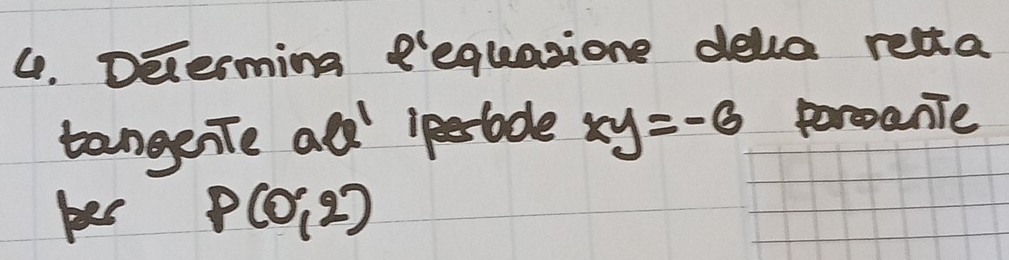 4. Determina l'equazione della retta
tangente all' iperbole xy=-6 passante
per P(0;2)